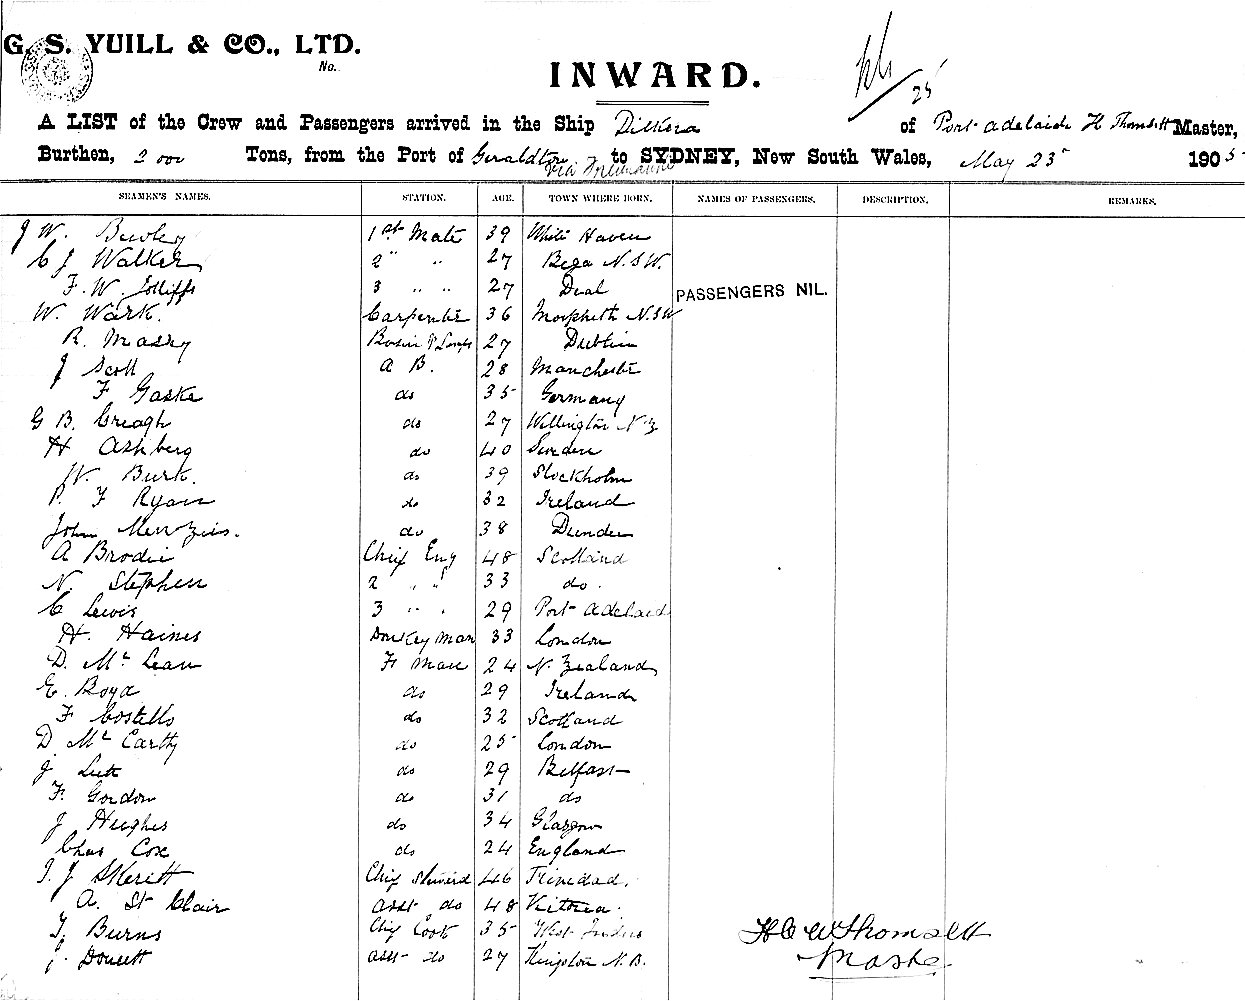 G. S. YUILL & CO., LTD.
No.
INWARD.
25
A LIST of the Crew and Passengers arrived in the Ship Dilkera of Port Adelaide H Thomsett Master,
Burthen, 2000 Tons, from the Port of Geraldton via Fremantle to SYDNEY, New South Wales, May 23 1905
SEAMEN'S NAMES. STATION. AGE. TOWN WHERE BORN. NAMES OF PASSENGERS. DESCRIPTION. REMARKS.
J W. 1st Mate 39 White Haven
C J Walker 2 " " 27 Bega N.S.W.
F. W. Jolliffe 3 " " 27 Deal
PASSENGERS NIL.
W. Wark. Carpenter 36 Morpheth N.S.W
R. Massy Bosun & Lamps 27 Dublin
J Scott A B. 28 Manchester
F Gaske do 35 Germany
G B. Creagh do 27 Wellington N.Z
H Ashberg do 40 Sweden
W. Burk. do 39 Stockholm
P. F Ryan do 32 Ireland
John Menzies. do 38 Dundee
A Brodie Chief Eng 48 Scotland
N. Stephen 2 " " 33 do.
C Lewis 3 " " 29 Port Adelaide
H. Haines Donkey man 33 London
D. McLean F man 24 N. Zealand
E. Boyd do 29 Ireland
F Costello do 32 Scotland
D McCarthy do 25 London
J do 29 Belfast
F. Gordon do 31 do
J Hughes do 34 Glasgow
Chas Cox do 24 England
J Skerett Chief Steward 46 Trinidad.
A. St Clair Asst do 48 Victoria.
T. Burns Chief Cook 35 West Indies
J. Dowett asst do 27 Kingston N.B.
H C W Thomsett
Master